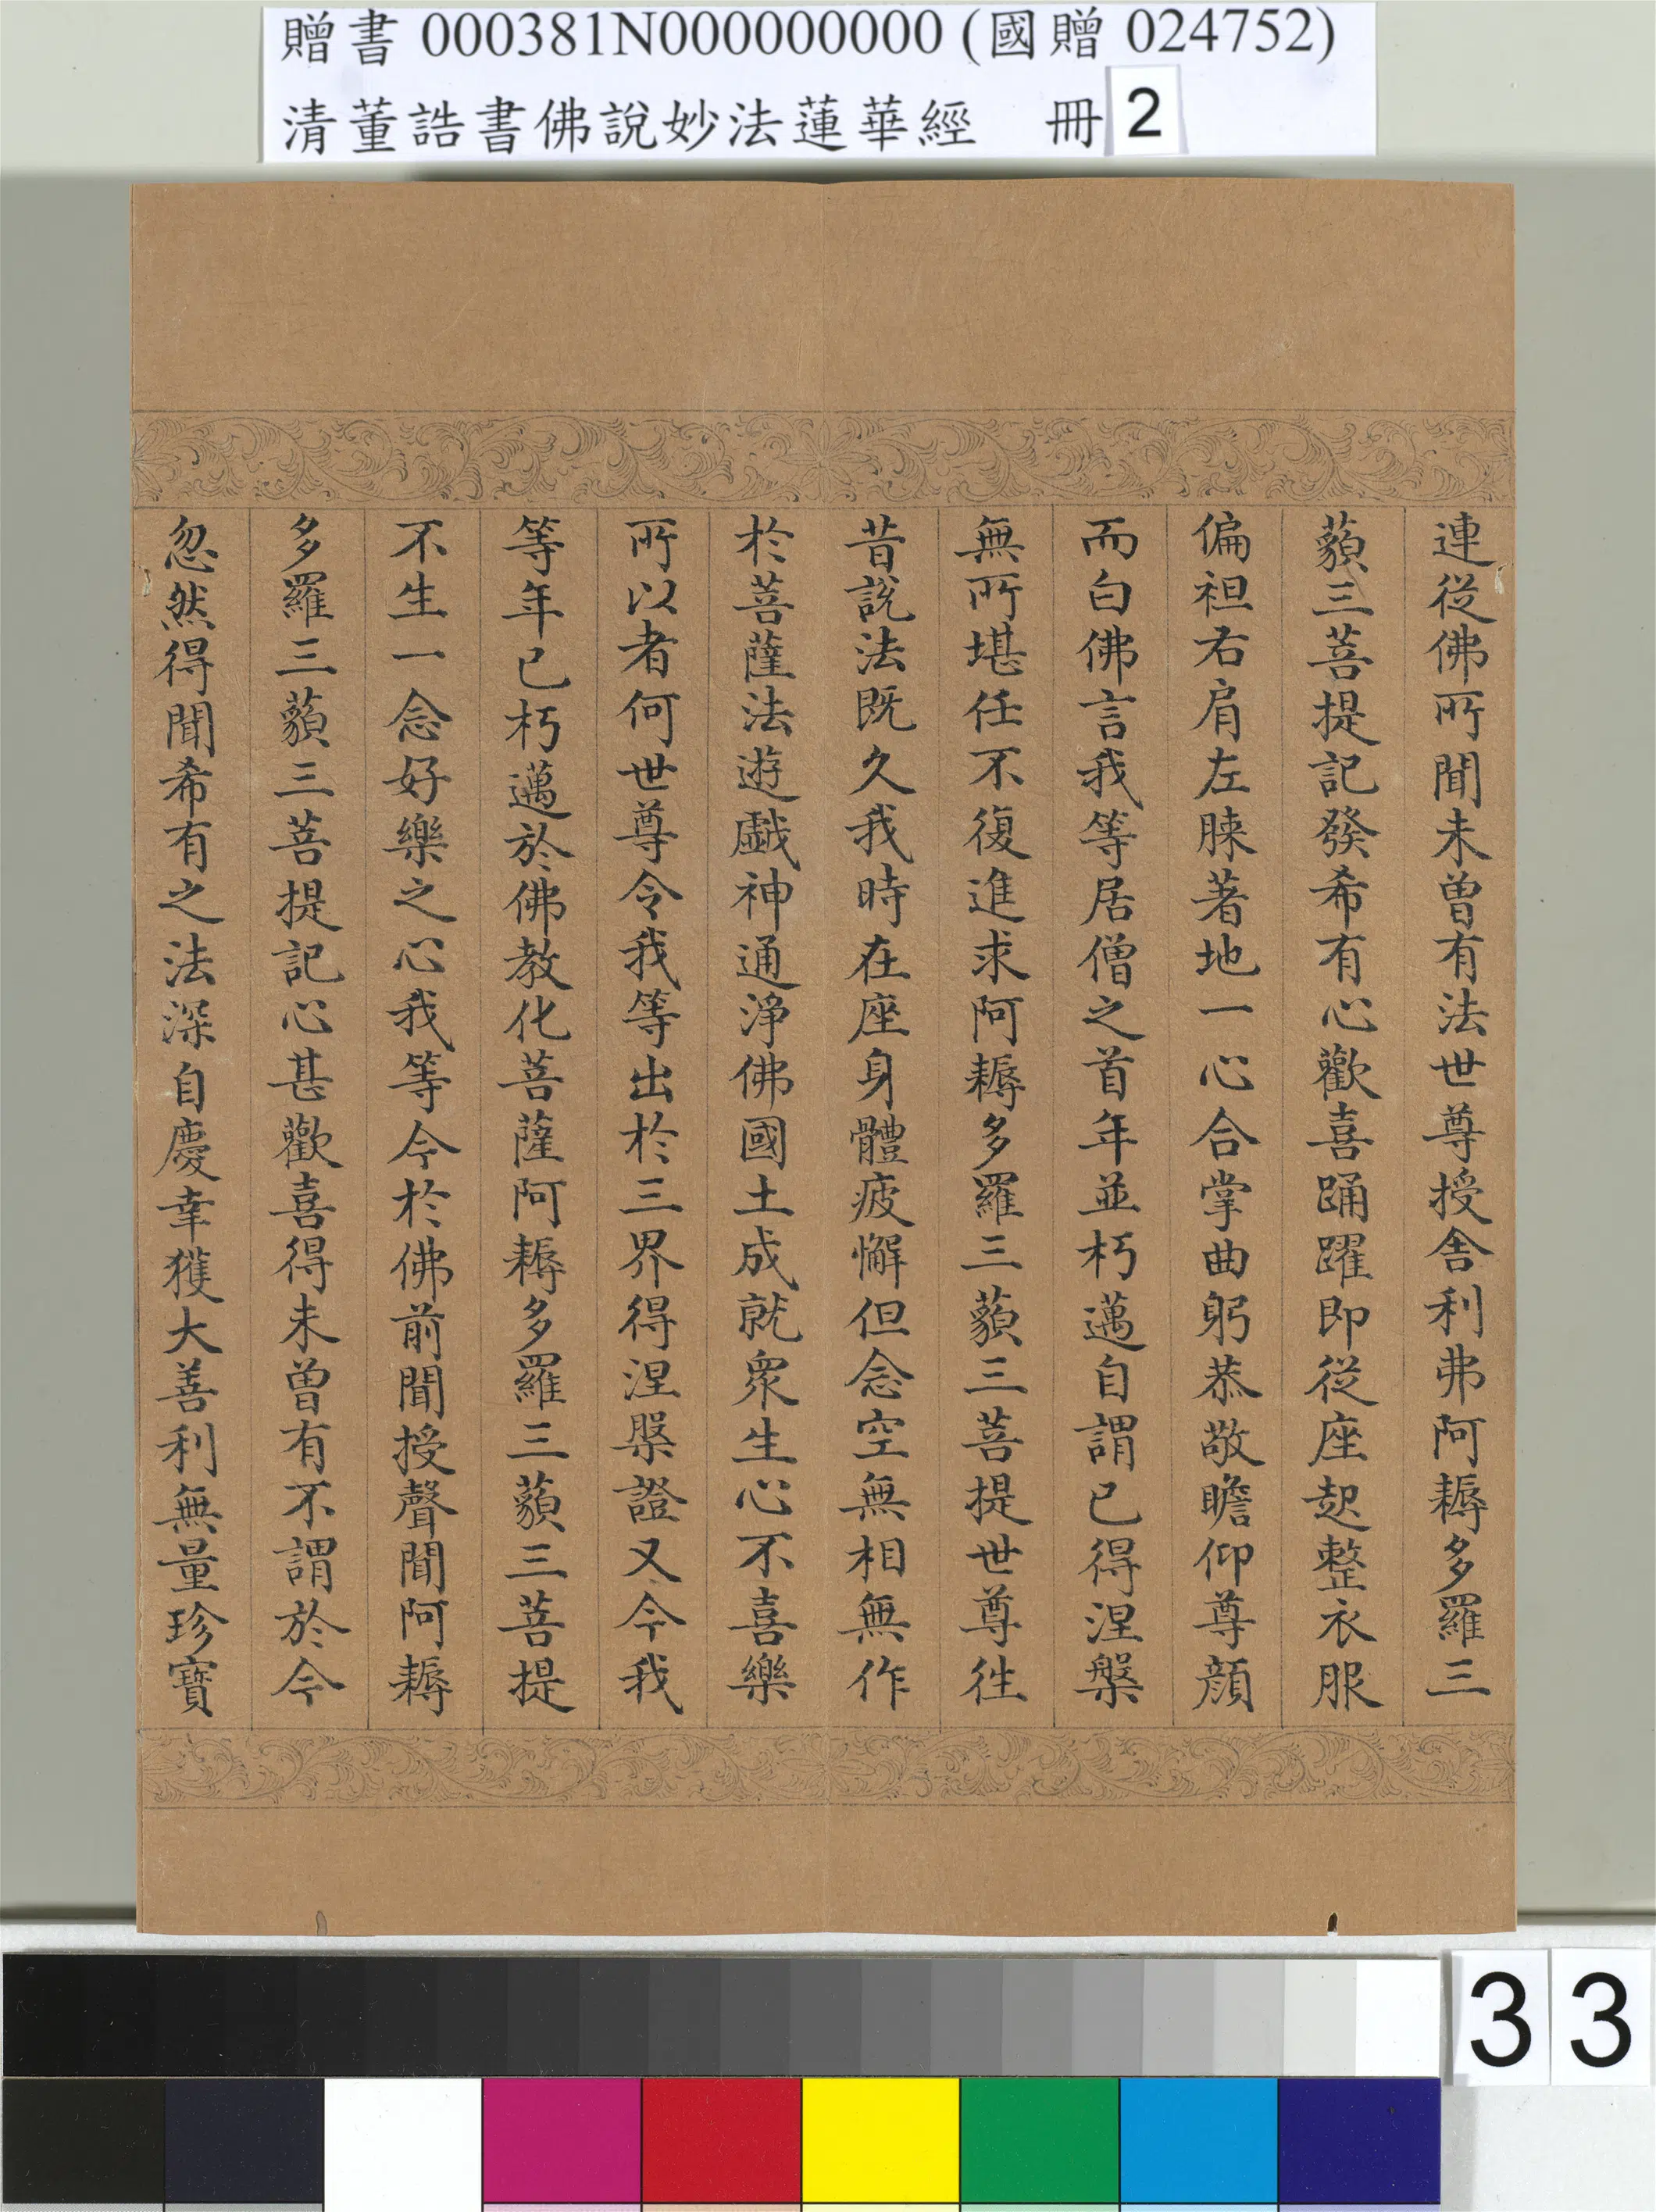 贈書 000381N000000000 (國贈 024752)
清董誥書佛說妙法蓮華經 冊 2
連從佛所聞未曾有法世尊授舍利弗阿耨多羅三
藐三菩提記發希有心歡喜踊躍即從座起整衣服
偏袒右肩左膝著地一心合掌曲躬恭敬瞻仰尊顏
而白佛言我等居僧之首年並朽邁自謂已得涅槃
無所堪任不復進求阿耨多羅三藐三菩提世尊往
昔說法既久我時在座身體疲懈但念空無相無作
於菩薩法遊戲神通淨佛國土成就眾生心不喜樂
所以者何世尊令我等出於三界得涅槃證又今我
等年已朽邁於佛教化菩薩阿耨多羅三藐三菩提
不生一念好樂之心我等今於佛前聞授聲聞阿耨
多羅三藐三菩提記心甚歡喜得未曾有不謂於今
忽然得聞希有之法深自慶幸獲大善利無量珍寶
33